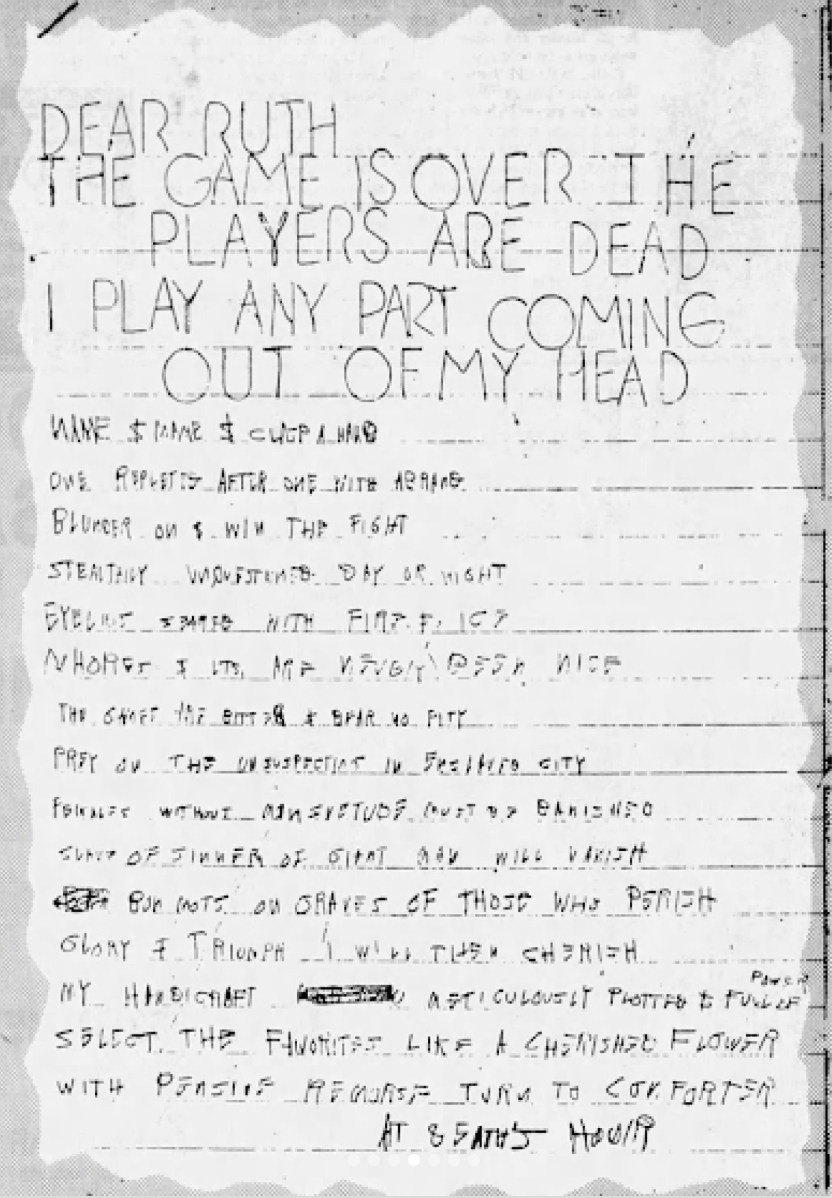 DEAR RUTH
THE GAME IS OVER THE
PLAYERS ARE DEAD
I PLAY ANY PART COMING
OUT OF MY HEAD
$ $ A
ONE AFTER ONE WITH
BLUNDER ON $ WIN THE FIGHT
STEALTHILY DAY OR NIGHT
WITH
WHORES $ ARE NICE
THE ARE BITTER & BEAR NO PITY
PREY ON THE UNSUSPECTING IN CITY
FEMALES WITHOUT MANSUETUDE MUST BE BANISHED
OF SINNER OF GIANT MAN WILL VANISH
ON GRAVES OF THOSE WHO PERISH
GLORY & TRIUMPH I WILL THEN CHERISH
MY HANDICRAFT METICULOUSLY PLOTTED & FULL OF POWER
SELECT THE FAVORITES LIKE A CHERISHED FLOWER
WITH PENSIVE REMORSE TURN TO COMFORTER
AT DEATH'S HOUR